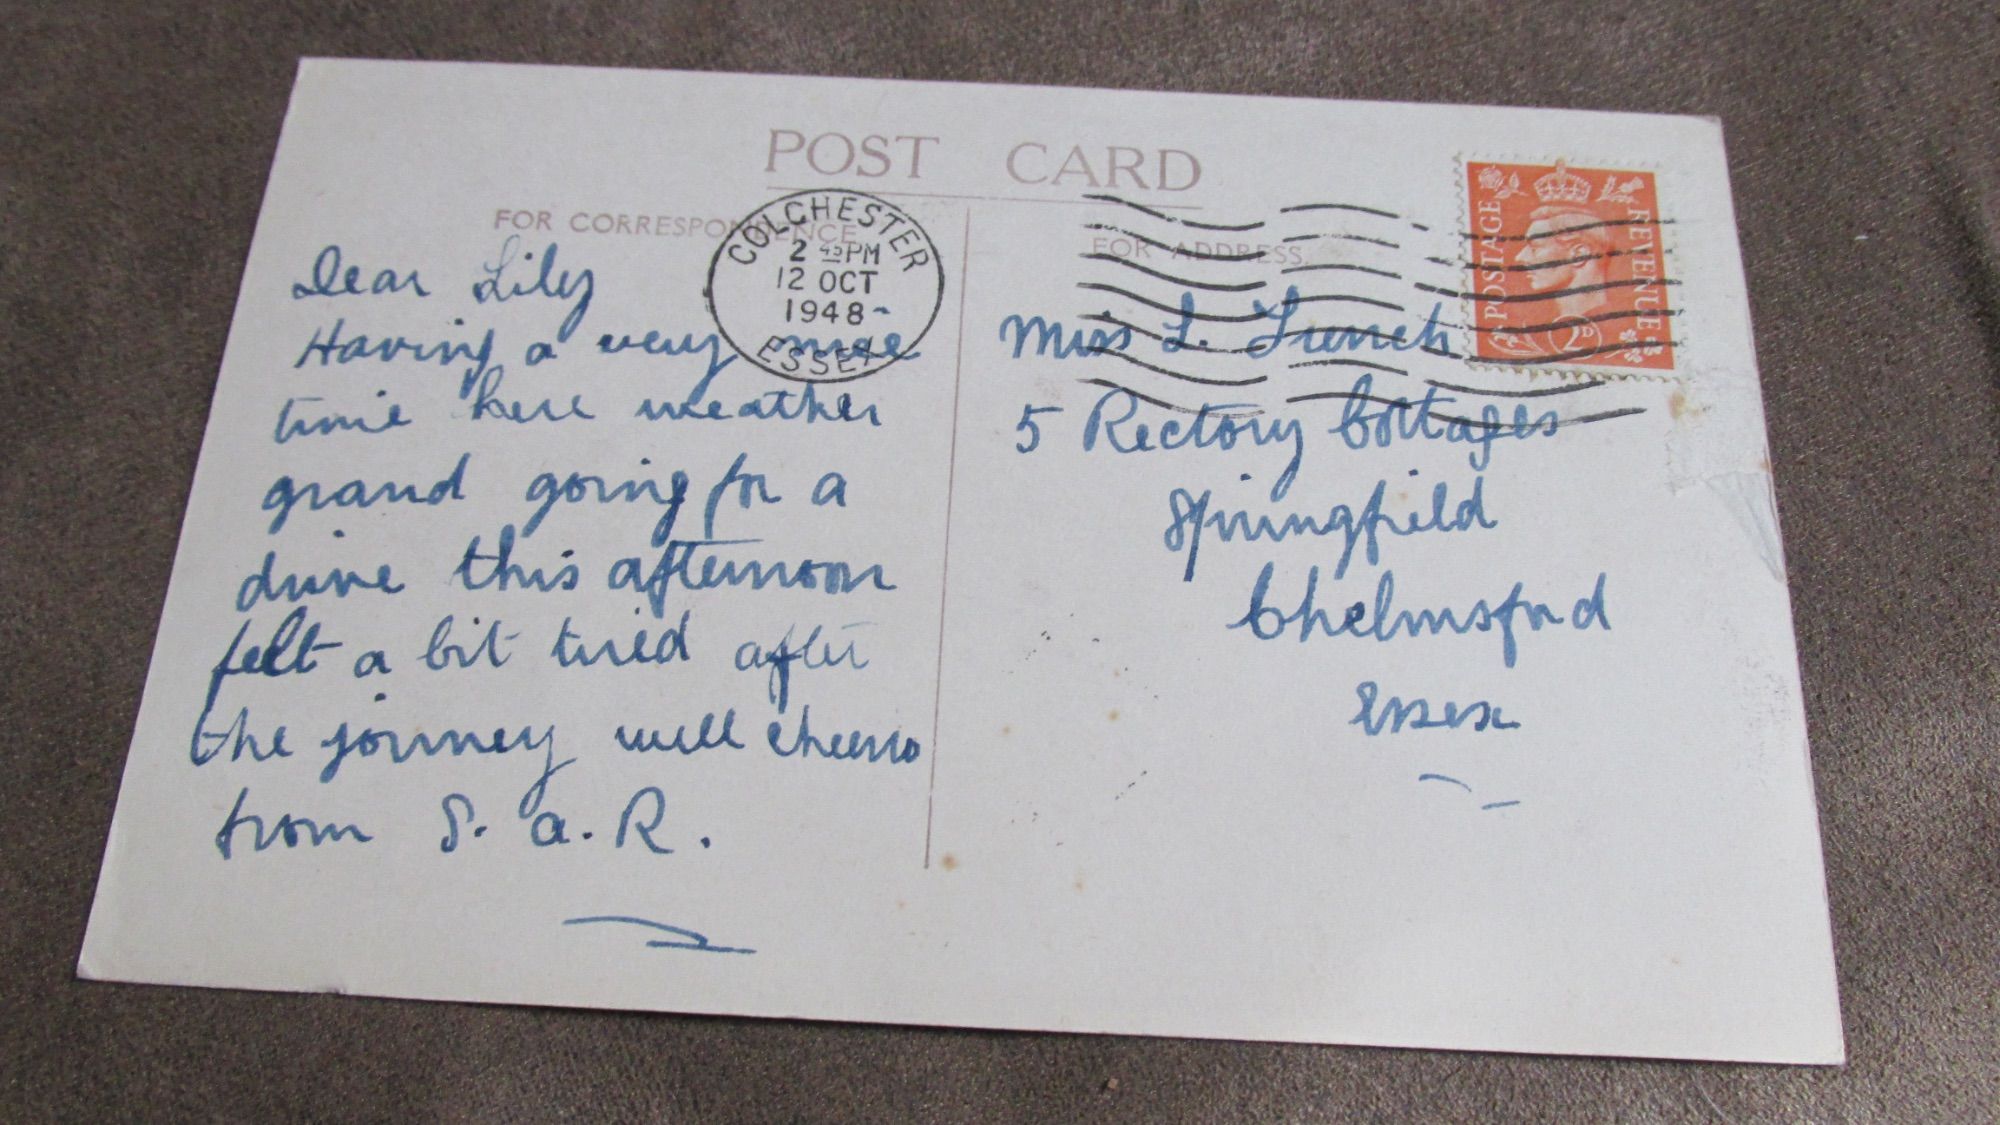 POST CARD
FOR CORRESPONDENCE
FOR ADDRESS
COLCHESTER
2 45 PM
12 OCT
1948
ESSEX
POSTAGE
REVENUE
2D
Dear Lily
Having a very nice
time here weather
grand going for a
drive this afternoon
felt a bit tired after
the journey well cheerio
from S. A. R.
Miss L.
5 Rectory Cottages
Springfield
Chelmsford
Essex